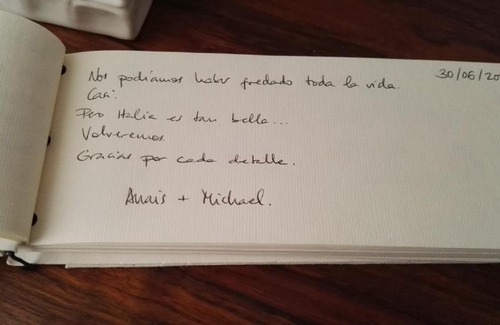 30/06/20
Nos podíamos haber quedado toda la vida.
Casi.
Pero Italia es tan bella...
Volveremos.
Gracias por cada detalle.
Anais + Michael.